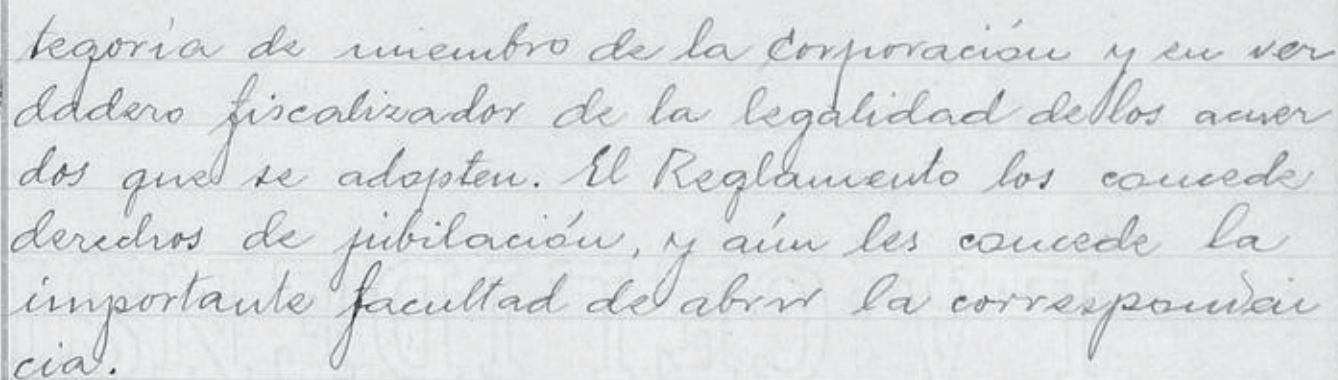 tegoría de miembro de la Corporación y en ver
dadero fiscalizador de la legalidad de los acuer
dos que se adopten. El Reglamento los concede
derechos de jubilación, y aún les concede la
importante facultad de abrir la corresponden
cia.